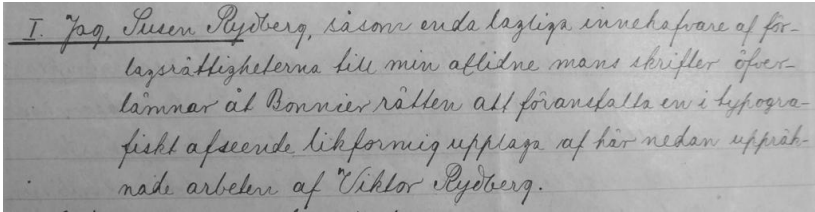 I. Jag, Susen Rydberg, såsom enda lagliga innehafvare af för-
lagsrättigheterna till min aflidne mans skrifter öfver-
lämnar åt Bonnier rätten att föranstalta en i typogra-
fiskt afseende likformig upplaga af här nedan uppräk-
nade arbeten af Viktor Rydberg.